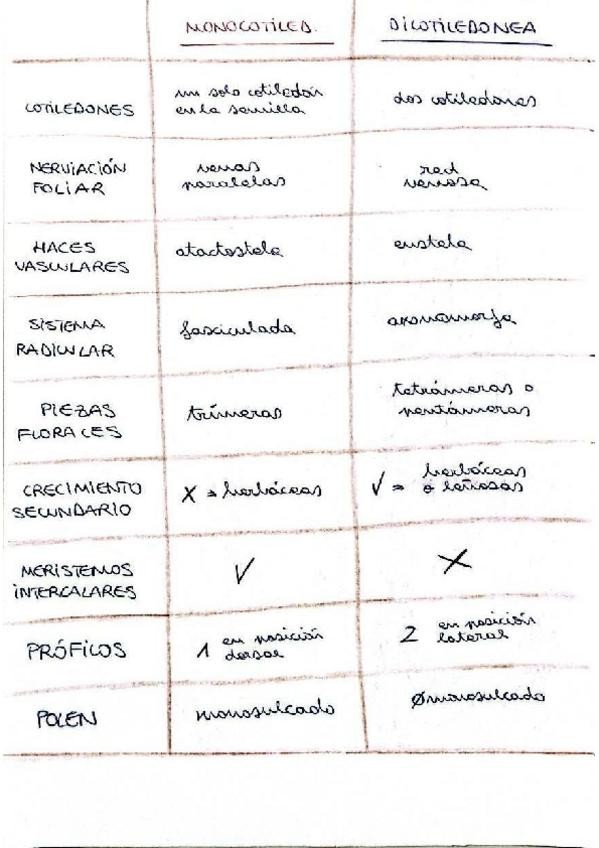 MONOCOTILED. DICOTILEDONEA
COTILEDONES un solo cotiledón dos cotiledones
en la semilla
NERVIACIÓN venas red
FOLIAR paralelas venosa
HACES atactostela eustela
VASCULARES
SISTEMA fasciculada axonomorfa
RADICULAR
PIEZAS trímeras tetrámeras o
FLORALES pentámeras
CRECIMIENTO X ⇒ herbáceas ✓ ⇒ herbáceas
SECUNDARIO o leñosas
MERISTEMOS ✓ X
INTERCALARES
PRÓFILOS 1 en posición 2 en posición
dorsal lateral
POLEN monosulcado Ø monosulcado